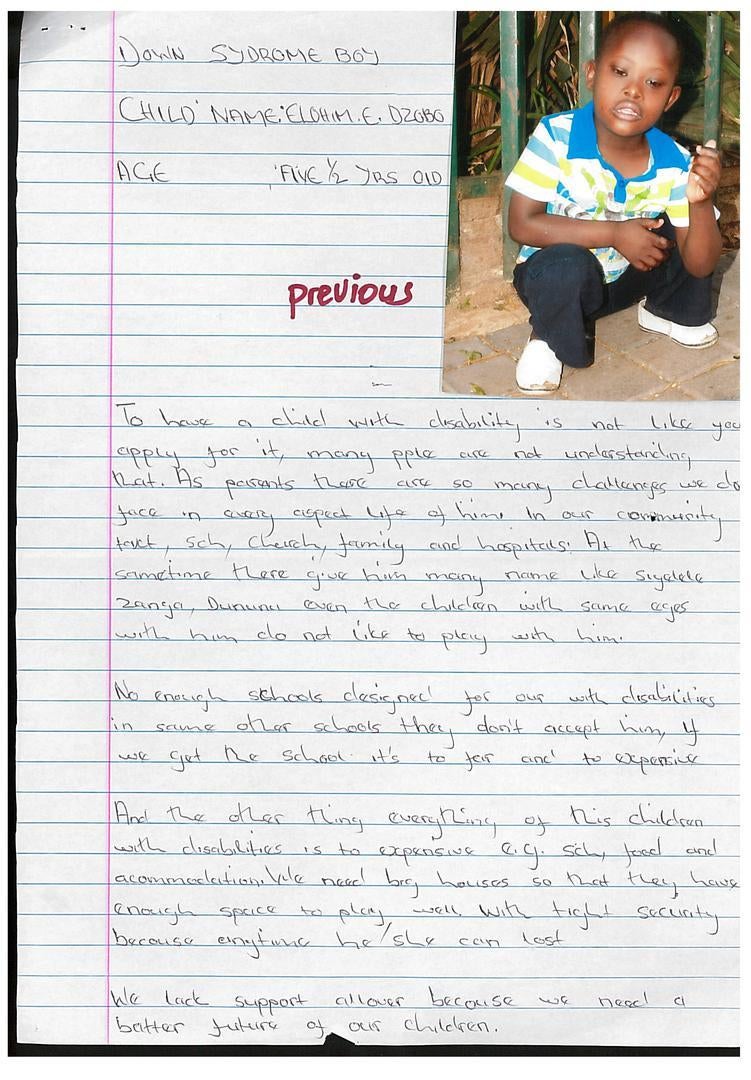 DOWN SYDROME BOY
CHILD' NAME: ELOHIM. E. DZOBO
AGE : FIVE ½ YRS OLD
previous
To have a child with disability is not like you
apply for it, many pple are not understanding
that. As parents there are so many challenges we do
face in every aspect life of him. In our community
, sch, church, family and hospitals. At the
sametime there give him many name like Siyalela
zanga, Dununu even the children with same ages
with him do not like to play with him.
No enough schools designed for our with disabilities
in same other schools they don't accept him, If
we get the school it's to far and to expensive
And the other thing everything of this children
with disabilities is to expensive e.g. sch, food and
acommodation. We need big houses so that they have
enough space to play well. With tight security
because anytime he/she can lost
We lack support allover because we need a
better future of our children.